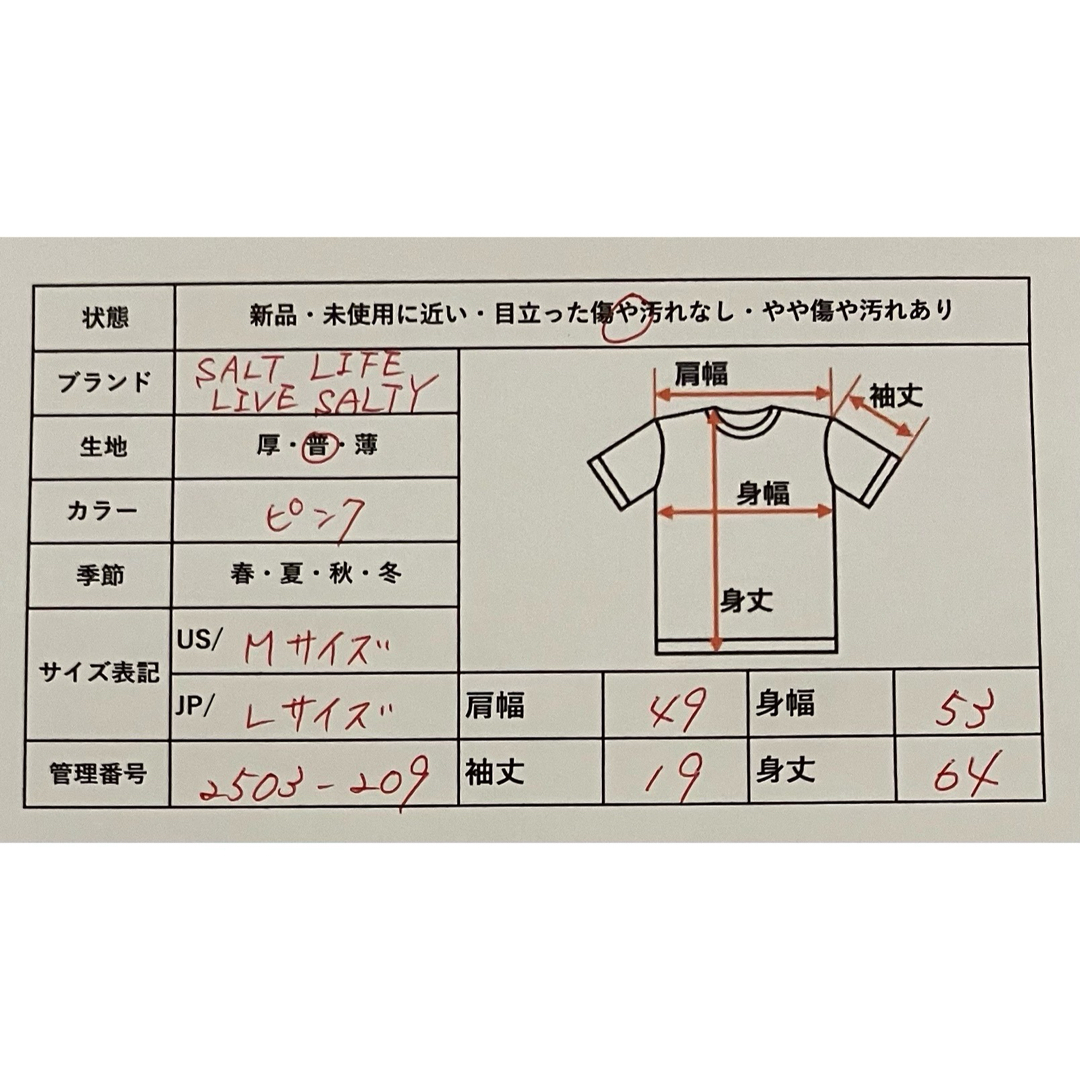 状態 新品・未使用に近い・目立った傷や汚れなし・やや傷や汚れあり
ブランド SALT LIFE
LIVE SALTY
生地 厚・普・薄
カラー ピンク
季節 春・夏・秋・冬
サイズ表記 US/ Mサイズ
JP/ Lサイズ
管理番号 2503-209
肩幅
袖丈
身幅
身丈
肩幅 49 身幅 53
袖丈 19 身丈 64